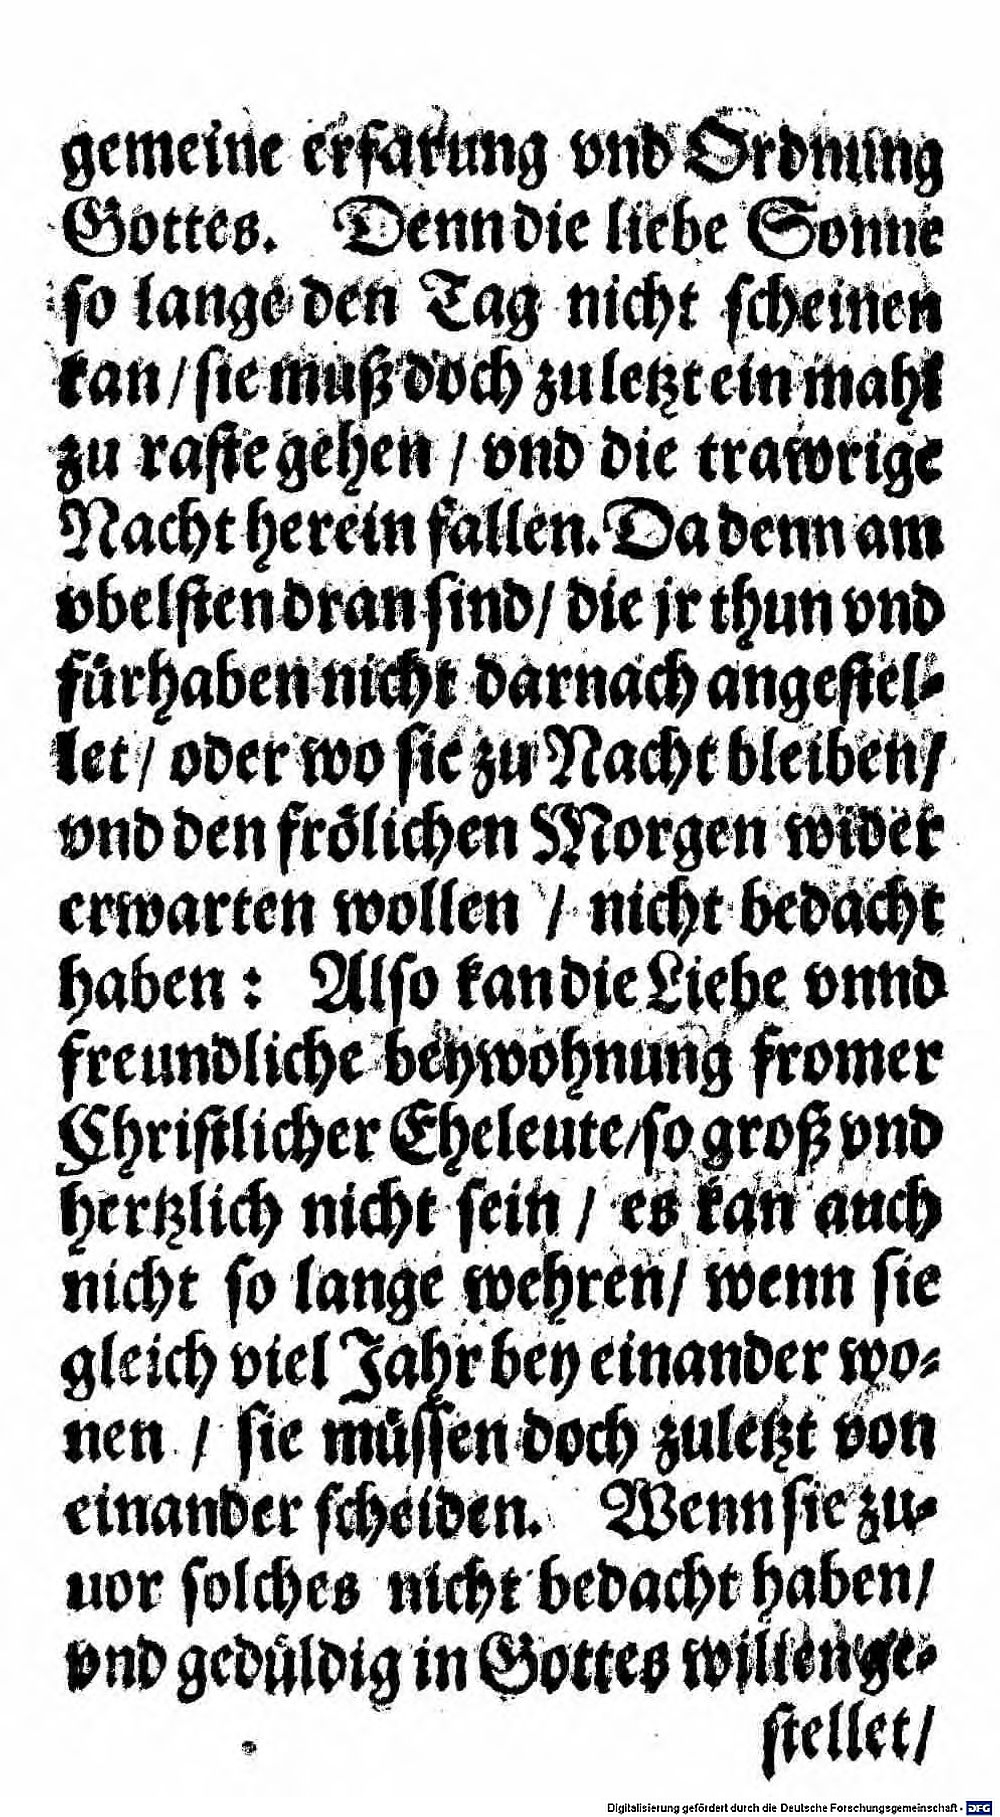 gemeine erfarung vnd Ordnung
Gottes. Denn die liebe Sonne
so lange den Tag nicht scheinen
kan / sie muß doch zu letzt ein mahl
zu raste gehen / vnd die trawrige
Nacht herein fallen. Da denn am
vbelsten dran sind / die jr thun vnd
fürhaben nicht darnach angestel-
let / oder wo sie zu Nacht bleiben /
vnd den frölichen Morgen wider
erwarten wollen / nicht bedacht
haben : Also kan die Liebe vnnd
freundliche beywohnung fromer
Christlicher Eheleute / so groß vnd
hertzlich nicht sein / es kan auch
nicht so lange wehren / wenn sie
gleich viel Jahr bey einander wo-
nen / sie müssen doch zuletzt von
einander scheiden. Wenn sie zu-
uor solches nicht bedacht haben /
vnd gedüldig in Gottes willen ge-
stellet /
Digitalisierung gefördert durch die Deutsche Forschungsgemeinschaft - DFG